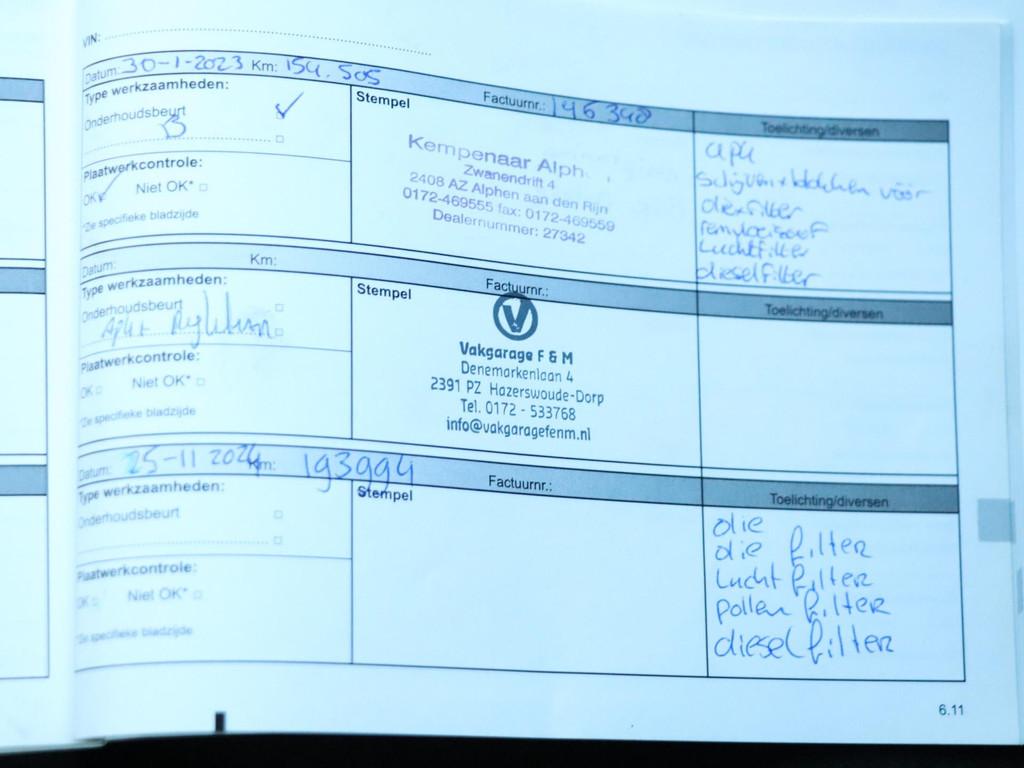 VIN:
Datum: 30-1-2023 Km: 154.505
Type werkzaamheden:
Onderhoudsbeurt
B
Plaatwerkcontrole:
OK Niet OK*
*Zie specifieke bladzijde
Stempel
Factuurnr.: 146348
Kempenaar Alph
Zwanendrift 4
2408 AZ Alphen aan den Rijn
0172-469555 fax: 0172-469559
Dealernummer: 27342
Toelichting/diversen
apk
schijven + blokken vóór
oliefilter
remvloeistof
luchtfilter
dieselfilter
Datum: Km:
Type werkzaamheden:
Onderhoudsbeurt
Apk +
Plaatwerkcontrole:
OK Niet OK*
*Zie specifieke bladzijde
Stempel
Factuurnr.:
V
Vakgarage F & M
Denemarkenlaan 4
2391 PZ Hazerswoude-Dorp
Tel. 0172 - 533768
info@vakgaragefenm.nl
Toelichting/diversen
Datum: 25-11 2024 Km: 193994
Type werkzaamheden:
Onderhoudsbeurt
Plaatwerkcontrole:
OK Niet OK*
*Zie specifieke bladzijde
Stempel
Factuurnr.:
Toelichting/diversen
olie
olie filter
Lucht filter
pollen filter
diesel filter
6.11